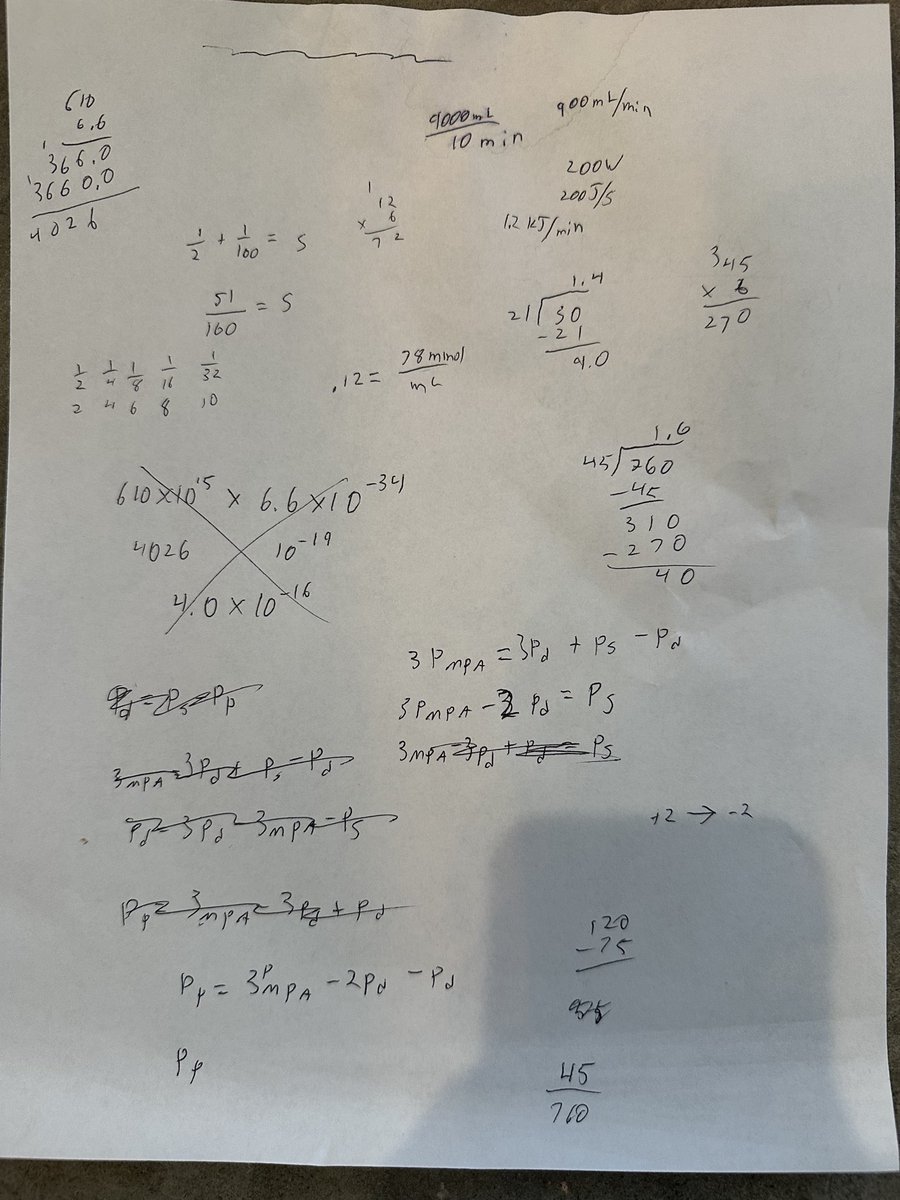 610
6.6
366.0
3660.0
4026
9000mL
10 min
900mL/min
200W
200J/s
1.2 kJ/min
1/2 + 1/100 = S
1
12
x 6
72
51/160 = S
1.4
21 30
-21
9.0
345
x 6
270
1/2 1/4 1/8 1/16 1/32
2 4 6 8 10
.12 = 78 mmol/mL
1.6
45 760
-45
310
-270
40
610 x 10^15 x 6.6 x 10^-34
4026 10^-19
4.0 x 10^-16
3 P_MPA = 3P_d + P_s - P_d
3P_MPA - 2 P_d = P_s
3_MPA - 3P_d + P_d = P_s
P_d = P_s - P_p
3_MPA = 3P_d + P_s - P_d
P_d = 3P_d - 3_MPA = P_s
P_p = 3_MPA - 3P_d + P_d
P_p = 3P_MPA - 2P_d - P_d
P_p
+2 → -2
120
-75
45
760